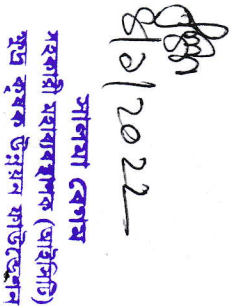 ৪/১/2022
সালমা বেগম
সহকারী মহাব্যবস্থাপক (আইসিটি)
ক্ষুদ্র কৃষক উন্নয়ন ফাউন্ডেশন